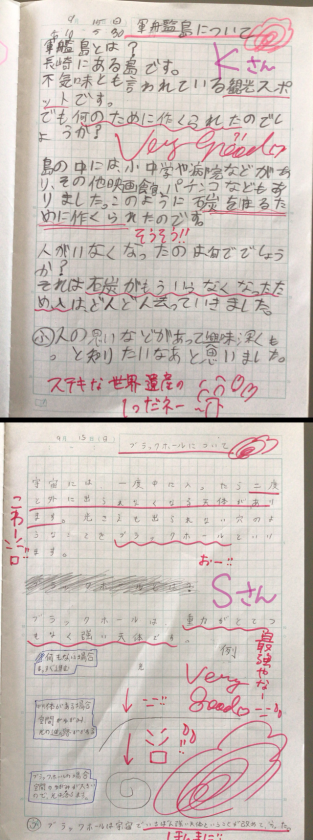 軍艦島について
軍艦島とは?
Kさん
長崎にある島です。
不気味とも言われている観光スポ
ットです。
でも何のために作くられたのでし
ょうか?
Very Good
島の中には、小中学や病院などがあ
り、その他映画館、パチンコなどもあ
りました。このように石炭をほるた
めに作くられたのです。
そうそう!!
人がいなくなったのはなぜでしょう
か?
それは石炭がもういらなくなったた
め人は、どんどん去っていきました。
人の思いなどがあって興味深くも
っと知りたいなあと思いました。
ステキな世界遺産の
1つだネー
ブラックホールについて
宇宙には、一度中に入ったら二度
と外に出られなくなる天体があり
ます。光さえも出られない穴のよ
うなことをブラックホールといい
ます。
こわー!!
おー!!
Sさん
ブラックホールは重力がとてつ
もなく強い天体です。
最強やなー
例
何もない場合
Very
Good
ブラックホールは宇宙で
ほんまに!!